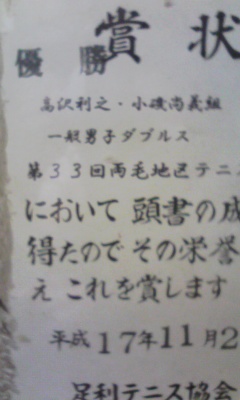 賞状
優勝
高沢利之・小磯尚義組
一般男子ダブルス
第33回両毛地区テニ
において 頭書の成
得たので その栄誉
え これを賞します
平成17年11月2
足利テニス協会